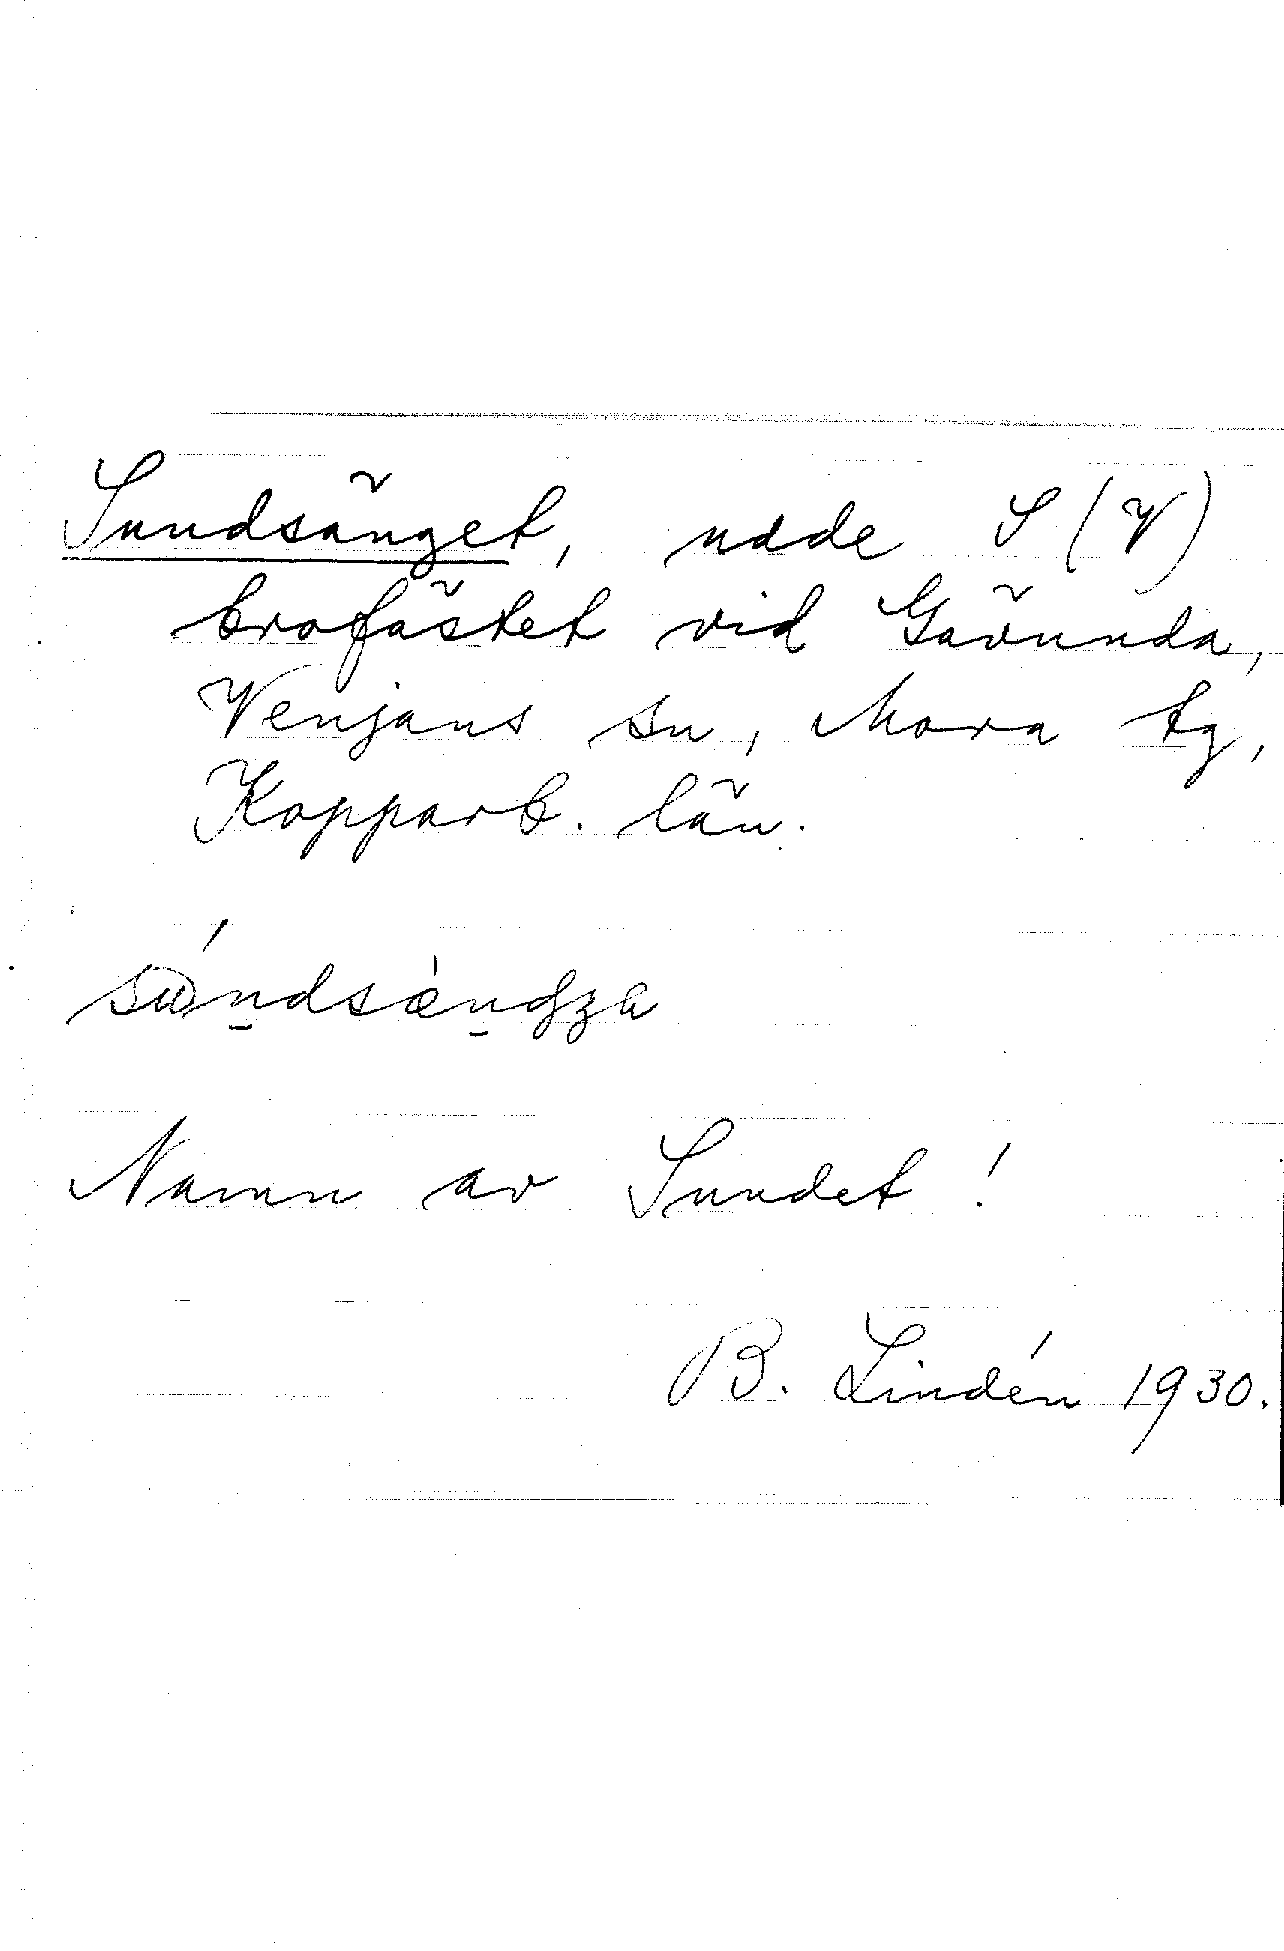 Sundsänget, udde S (V)
brofästet vid Gävunda,
Venjans sn, Mora tg,
Kopparb. län.
Namn av Sundet!
B. Lindén 1930.